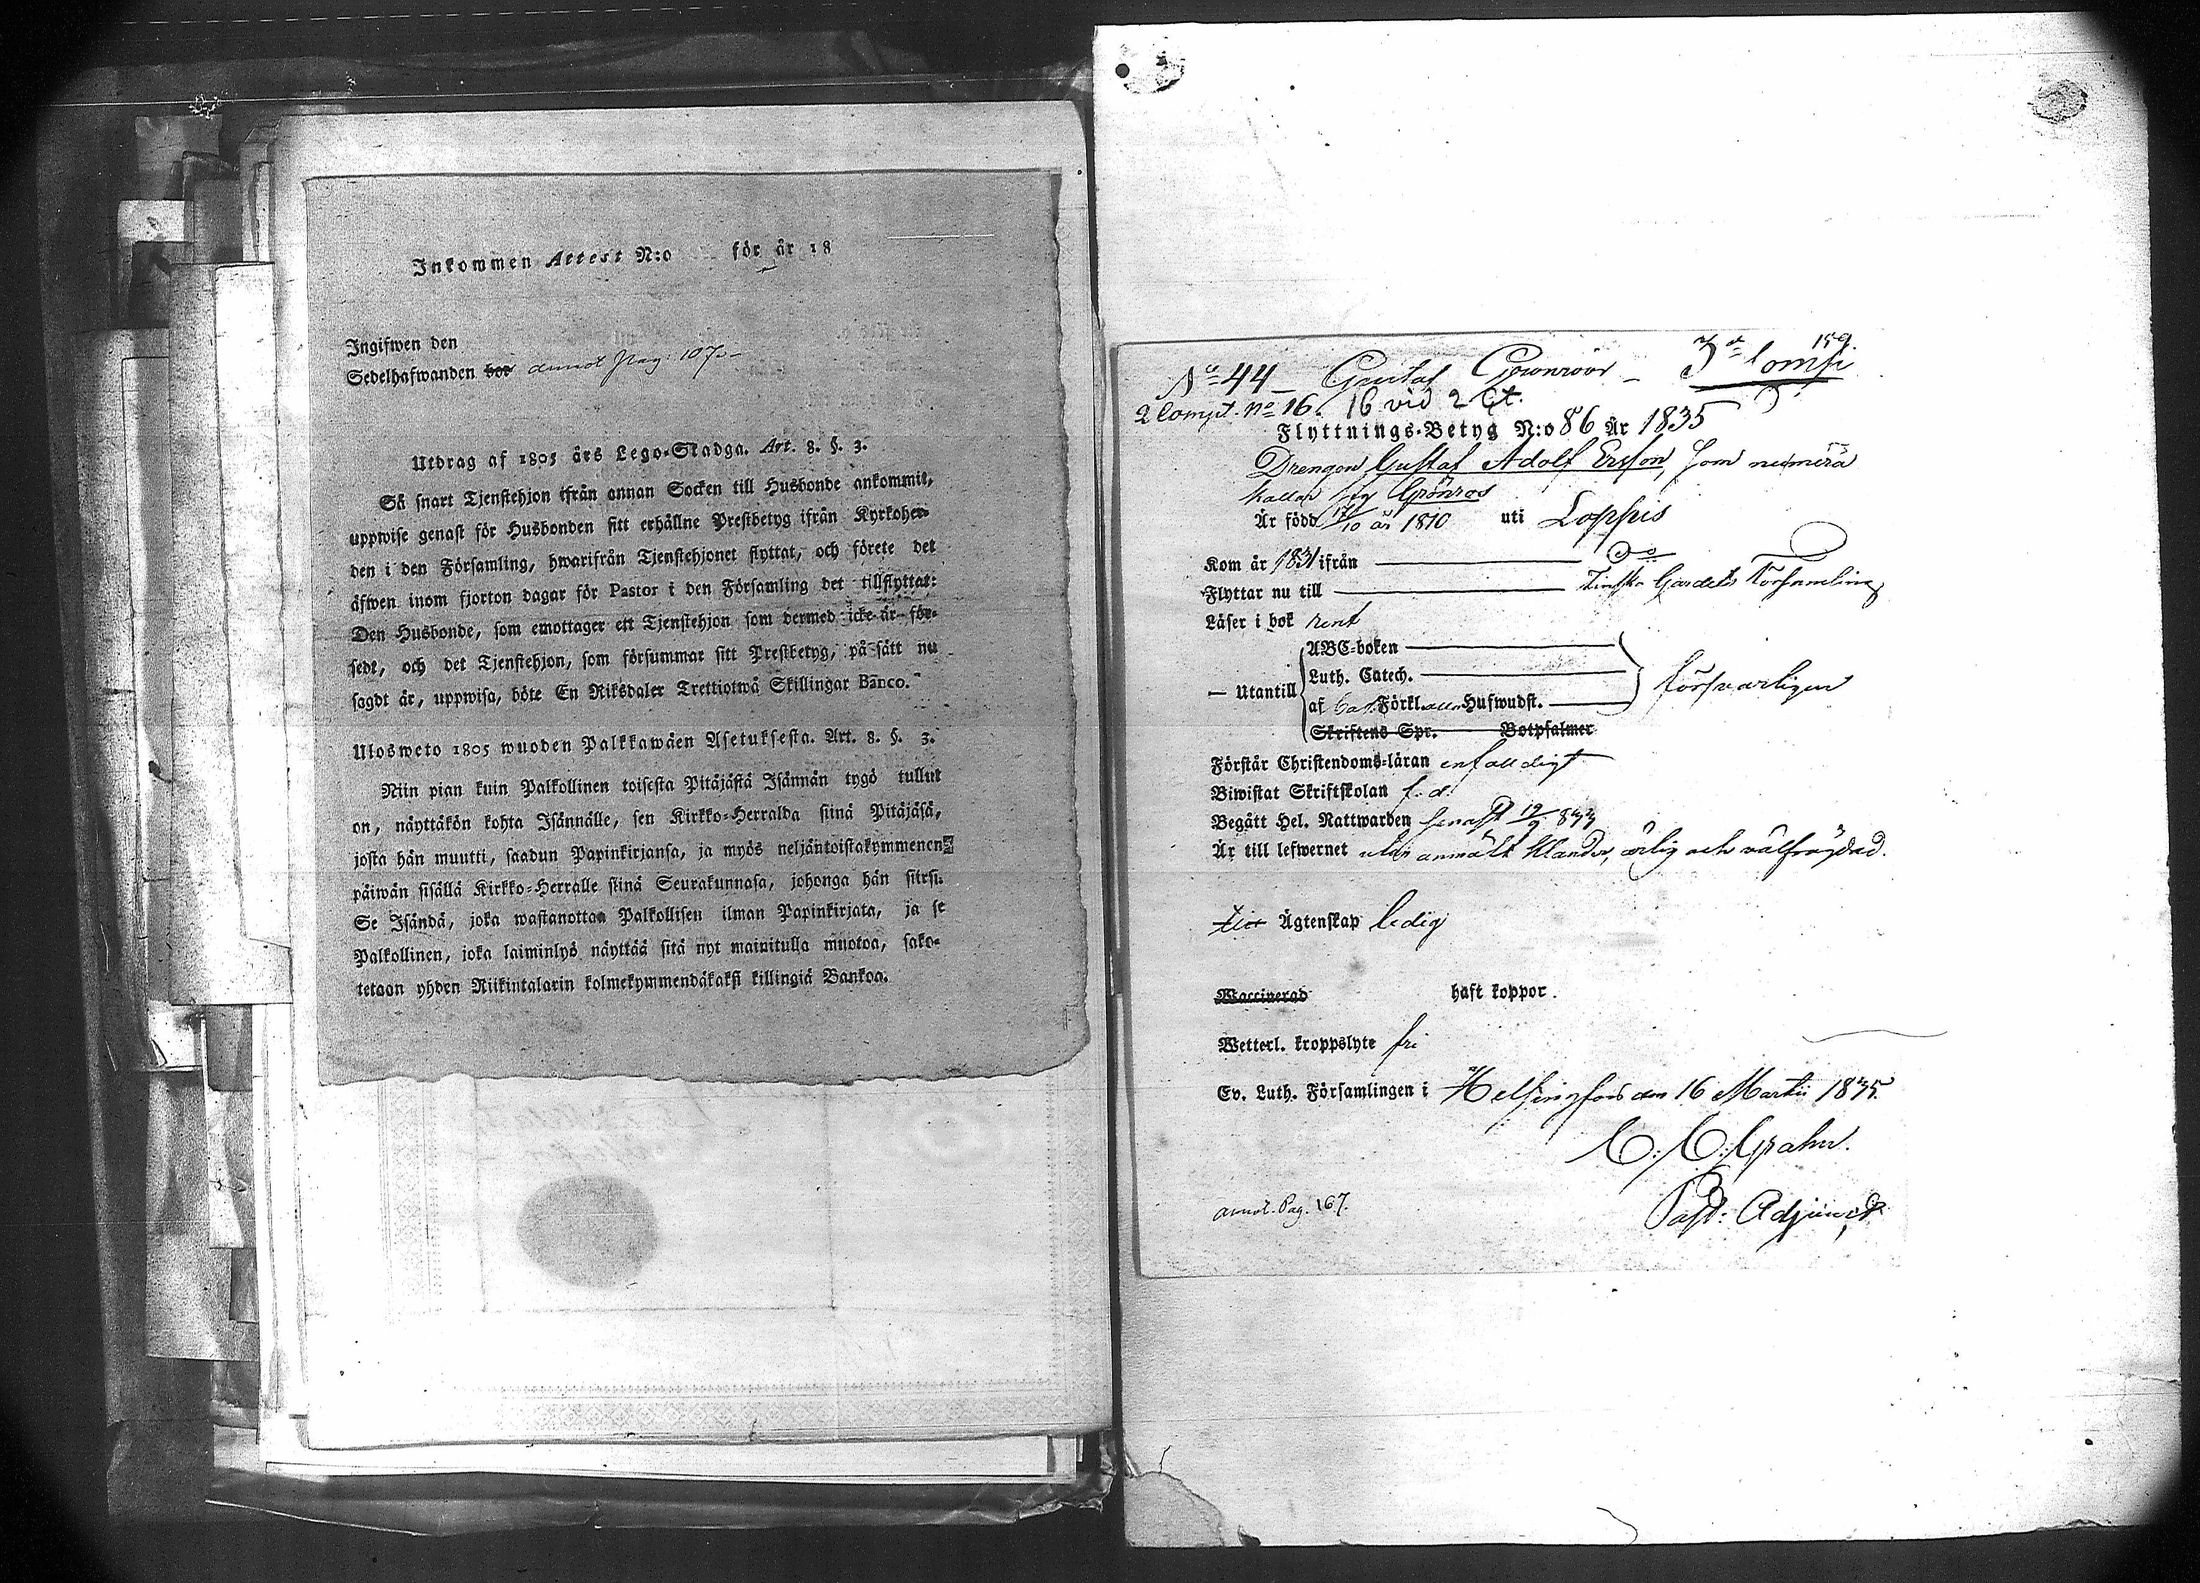 Inkommen Attest N:o för år 18
Ingifwen den
Sedelhafwanden bor annot pag: 107
Utdrag af 1805 års Lego-Stadga. Art. 8. §. 3.
Så snart Tjenstehjon ifrån annan Socken till Husbonde ankommit,
uppwise genast för Husbonden sitt erhållne Prestbetyg ifrån Kyrkoher-
den i den Församling, hwarifrån Tjenstehjonet flyttat, och förete det
äfwen inom fjorton dagar för Pastor i den Församling det tillflyttat:
Den Husbonde, som emottager ett Tjenstehjon som dermed icke är för-
sedt, och det Tjenstehjon, som försummar sitt Prestbetyg, på sätt nu
sagdt är, uppwisa, böte En Riksdaler Trettiotwå Skillingar Banco.
Ulosweto 1805 wuoden Palkkawäen Asetuksesta. Art. 8. §. 3.
Niin pian kuin Palkollinen toisesta Pitäjästä Isännän tygö tullut
on, näyttäkön kohta Isännälle, sen Kirkko-Herralda siinä Pitäjäsä,
josta hän muutti, saadun Papinkirjansa, ja myös neljäntoistakymmenen
päiwän sisällä Kirkko-Herralle siinä Seurakunnasa, johonga hän siirsi.
Se Isändä, joka wastanottaa Palkollisen ilman Papinkirjata, ja se
Palkollinen, joka laiminlyö näyttää sitä nyt mainitulla muotoa, sako-
tetaan yhden Riikintalarin kolmekymmendäkaksi killingiä Bankoa.
159.
No 44 Gustaf Grönroos 3de Comp
2 Comp. No 16. 16 vid 2 Ct.
Flyttnings-Betyg N:o 86 År 1835
Drengen Gustaf Adolf Ersson, som numera
kallar sig Grönroos
Är född 17/10 år 1810 uti Loppis
Kom år 1831 ifrån Do
Flyttar nu till Finska Gardets Församling
Läser i bok rent
ABC-boken
Luth. Catech.
— Utantill försvarligen
af Förkl. Hufwudst.
Skriftens Spr. Botpsalmer
Förstår Christendoms-läran enfalldigt
Biwistat Skriftskolan f. d.
Begått Hel. Nattwarden senast 19/9 833
Är till lefwernet utan anmält klander, ärlig och välfrägdad.
Ägtenskap ledig
Waccinerad haft koppor.
Wetterl. kroppslyte fri
Ev. Luth. Församlingen i Helsingfors den 16 Martii 1835.
C. C. Grahn.
Past: Adjunct.
annot. Pag. 167.